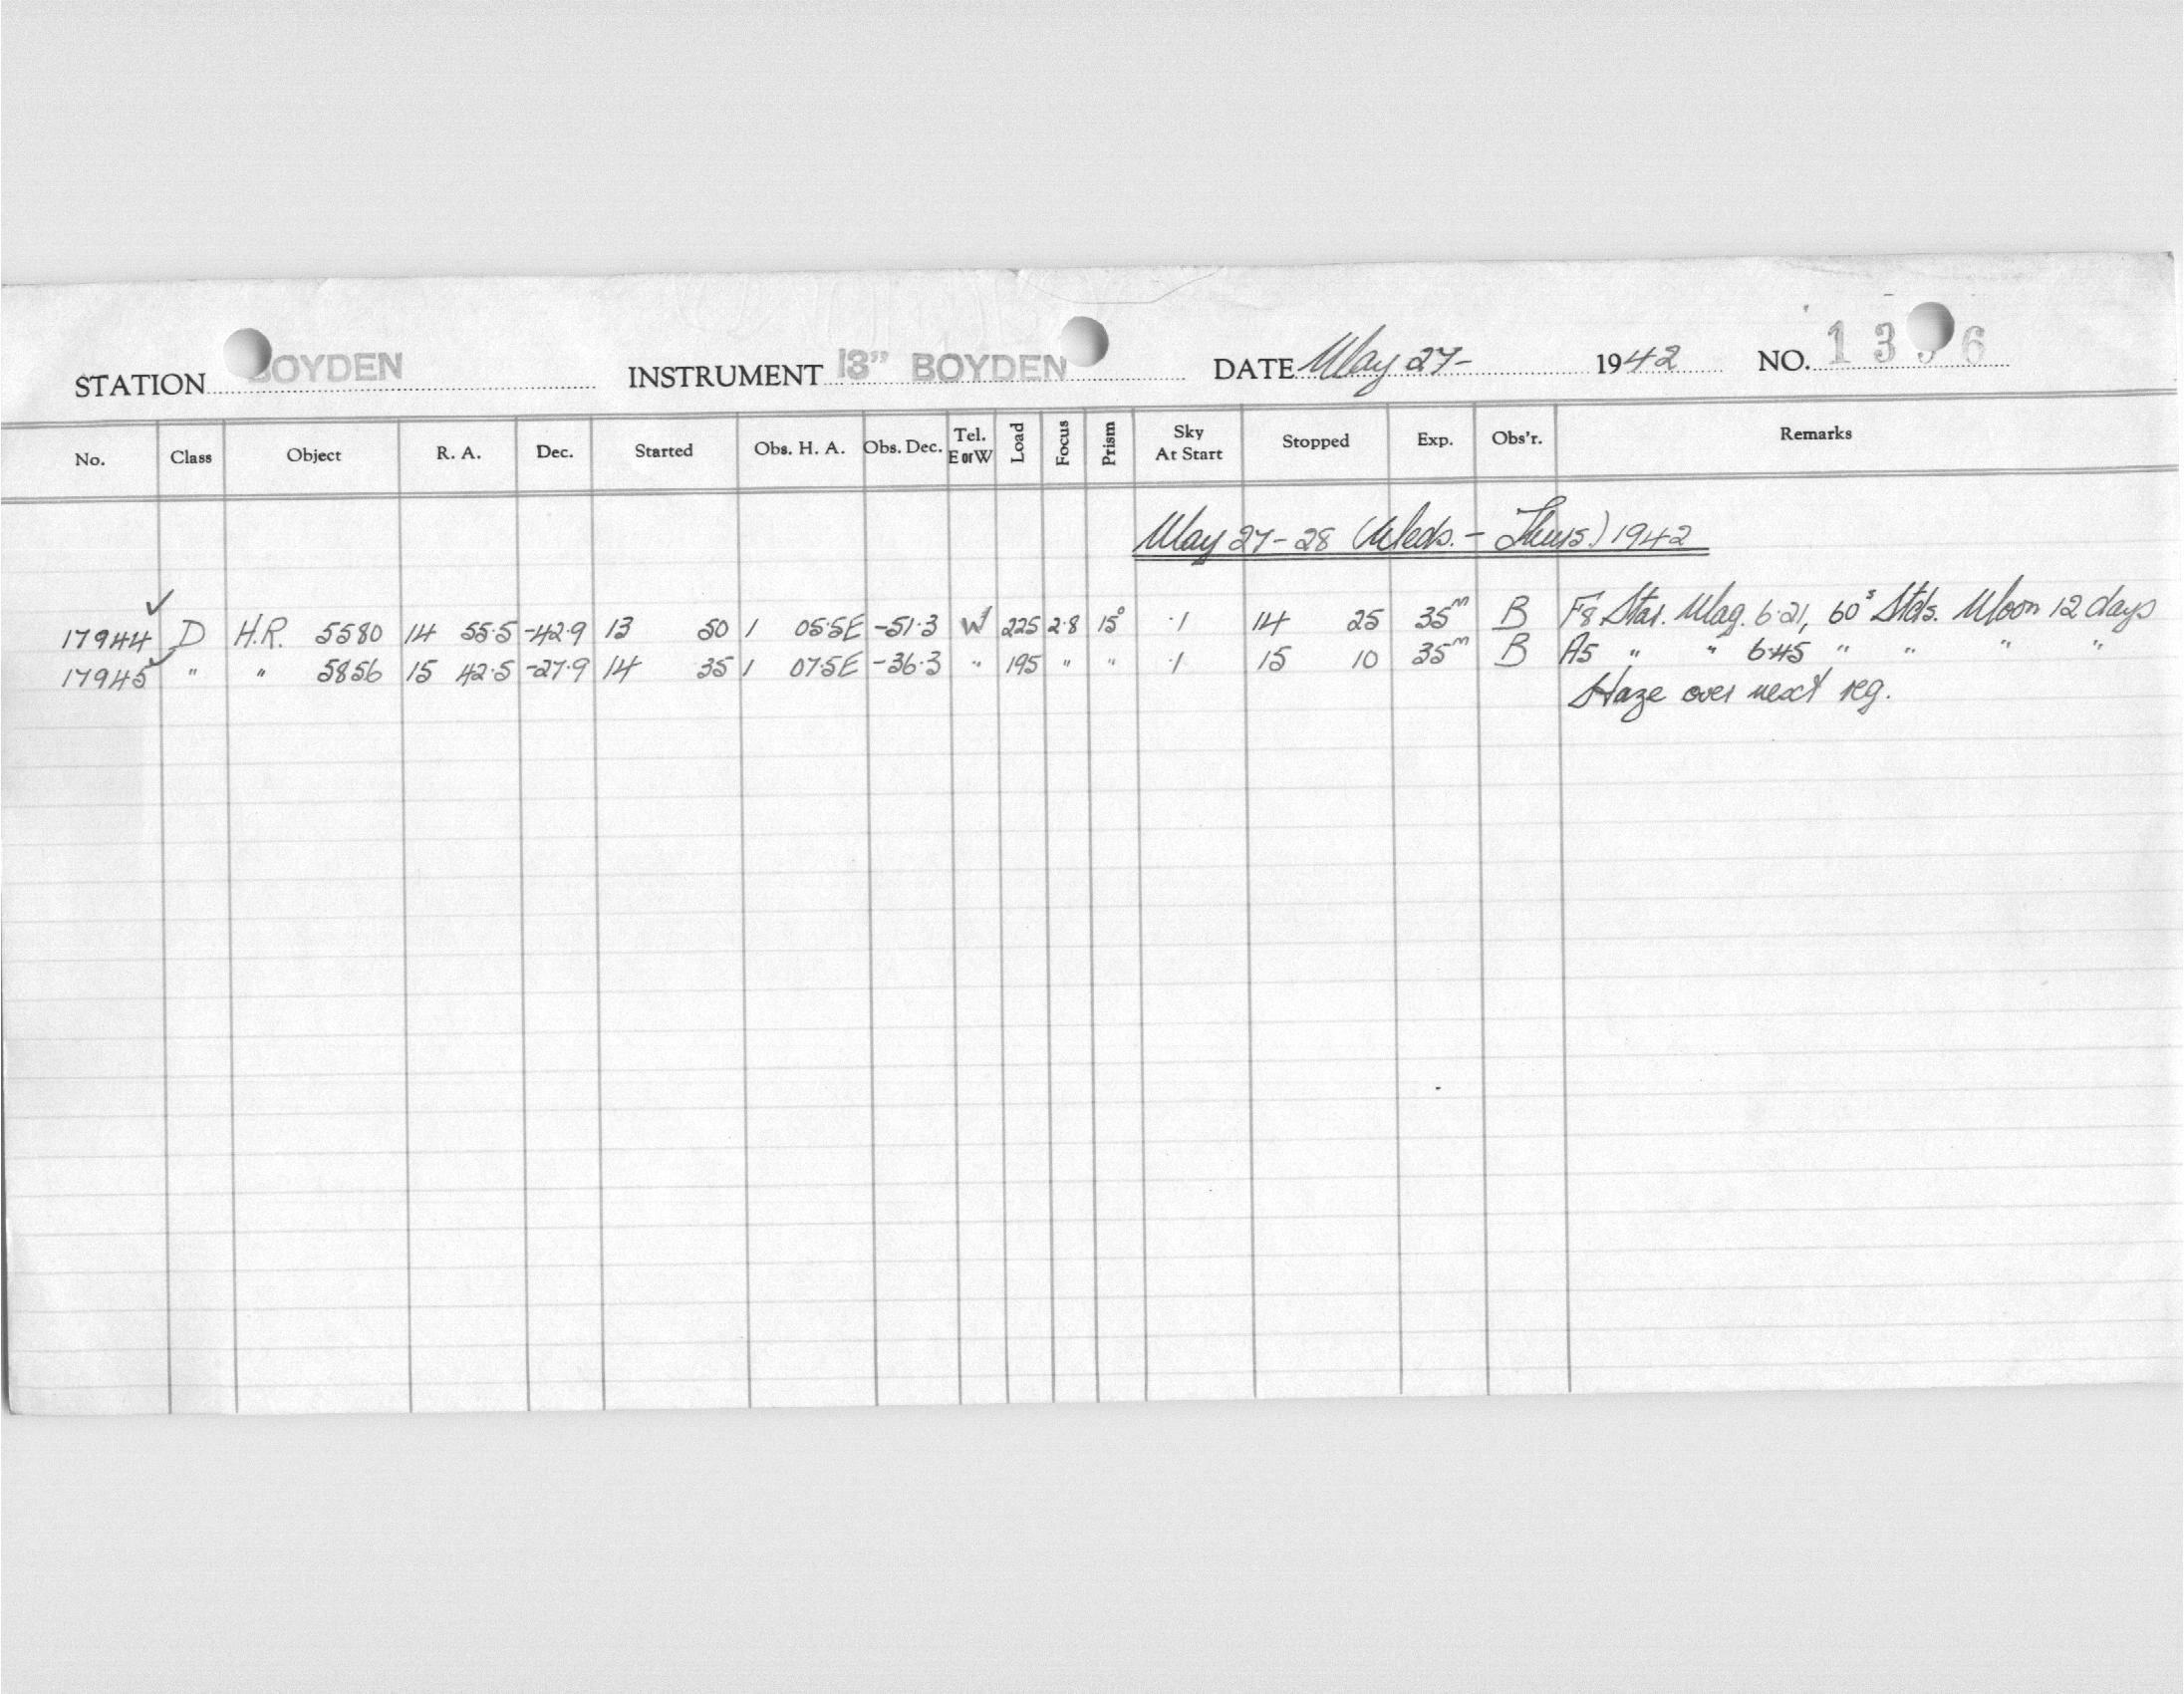 STATION BOYDEN INSTRUMENT 13" BOYDEN DATE May 27- 1942 NO. 13 6
No. Class Object R. A. Dec. Started Obs. H. A. Obs. Dec. Tel. E or W Load Focus Prism Sky At Start Stopped Exp. Obs'r. Remarks
May 27-28 (Weds. - Thurs.) 1942
17944 ✓ D H.R. 5580 14 55.5 -42.9 13 50 1 05.5E -51.3 W 225 2.8 15° .1 14 25 35m B F8 Star. Mag. 6.21, 60s Stds. Moon 12 days
17945 ✓ " " 5856 15 42.5 -27.9 14 35 1 07.5E -36.3 " 195 " " .1 15 10 35m B A5 " " 6.45 " " " "
Haze over next reg.